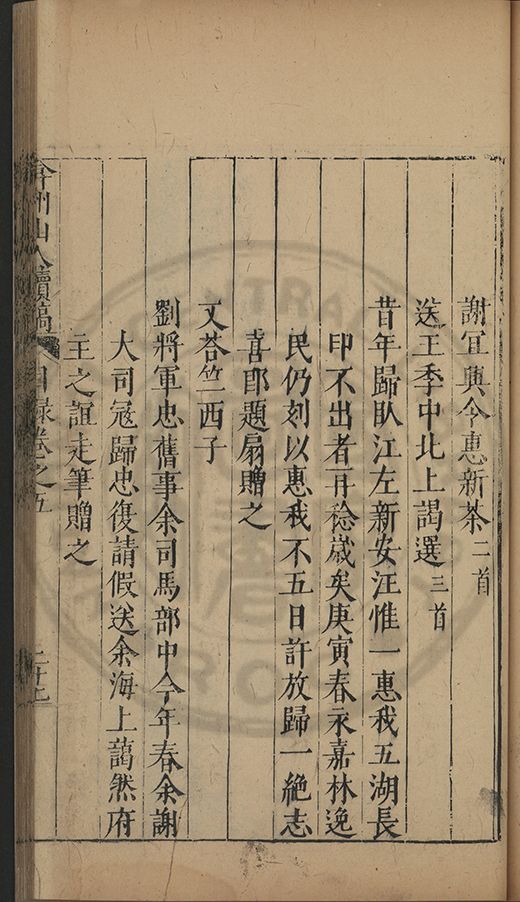 謝宜興令惠新茶二首
送王季中北上謁選三首
昔年歸臥江左新安汪惟一惠我五湖長
印不出者再稔歲矣庚寅春永嘉林逸
民仍刻以惠我不五日許放歸一絶志
喜郎題扇贈之
又荅竺西子
劉將軍忠舊事余司馬部中今年春余謝
大司冦歸忠復請假送余海上藹然府
主之誼走筆贈之
弇州山人續稿 目録卷之五 二十七